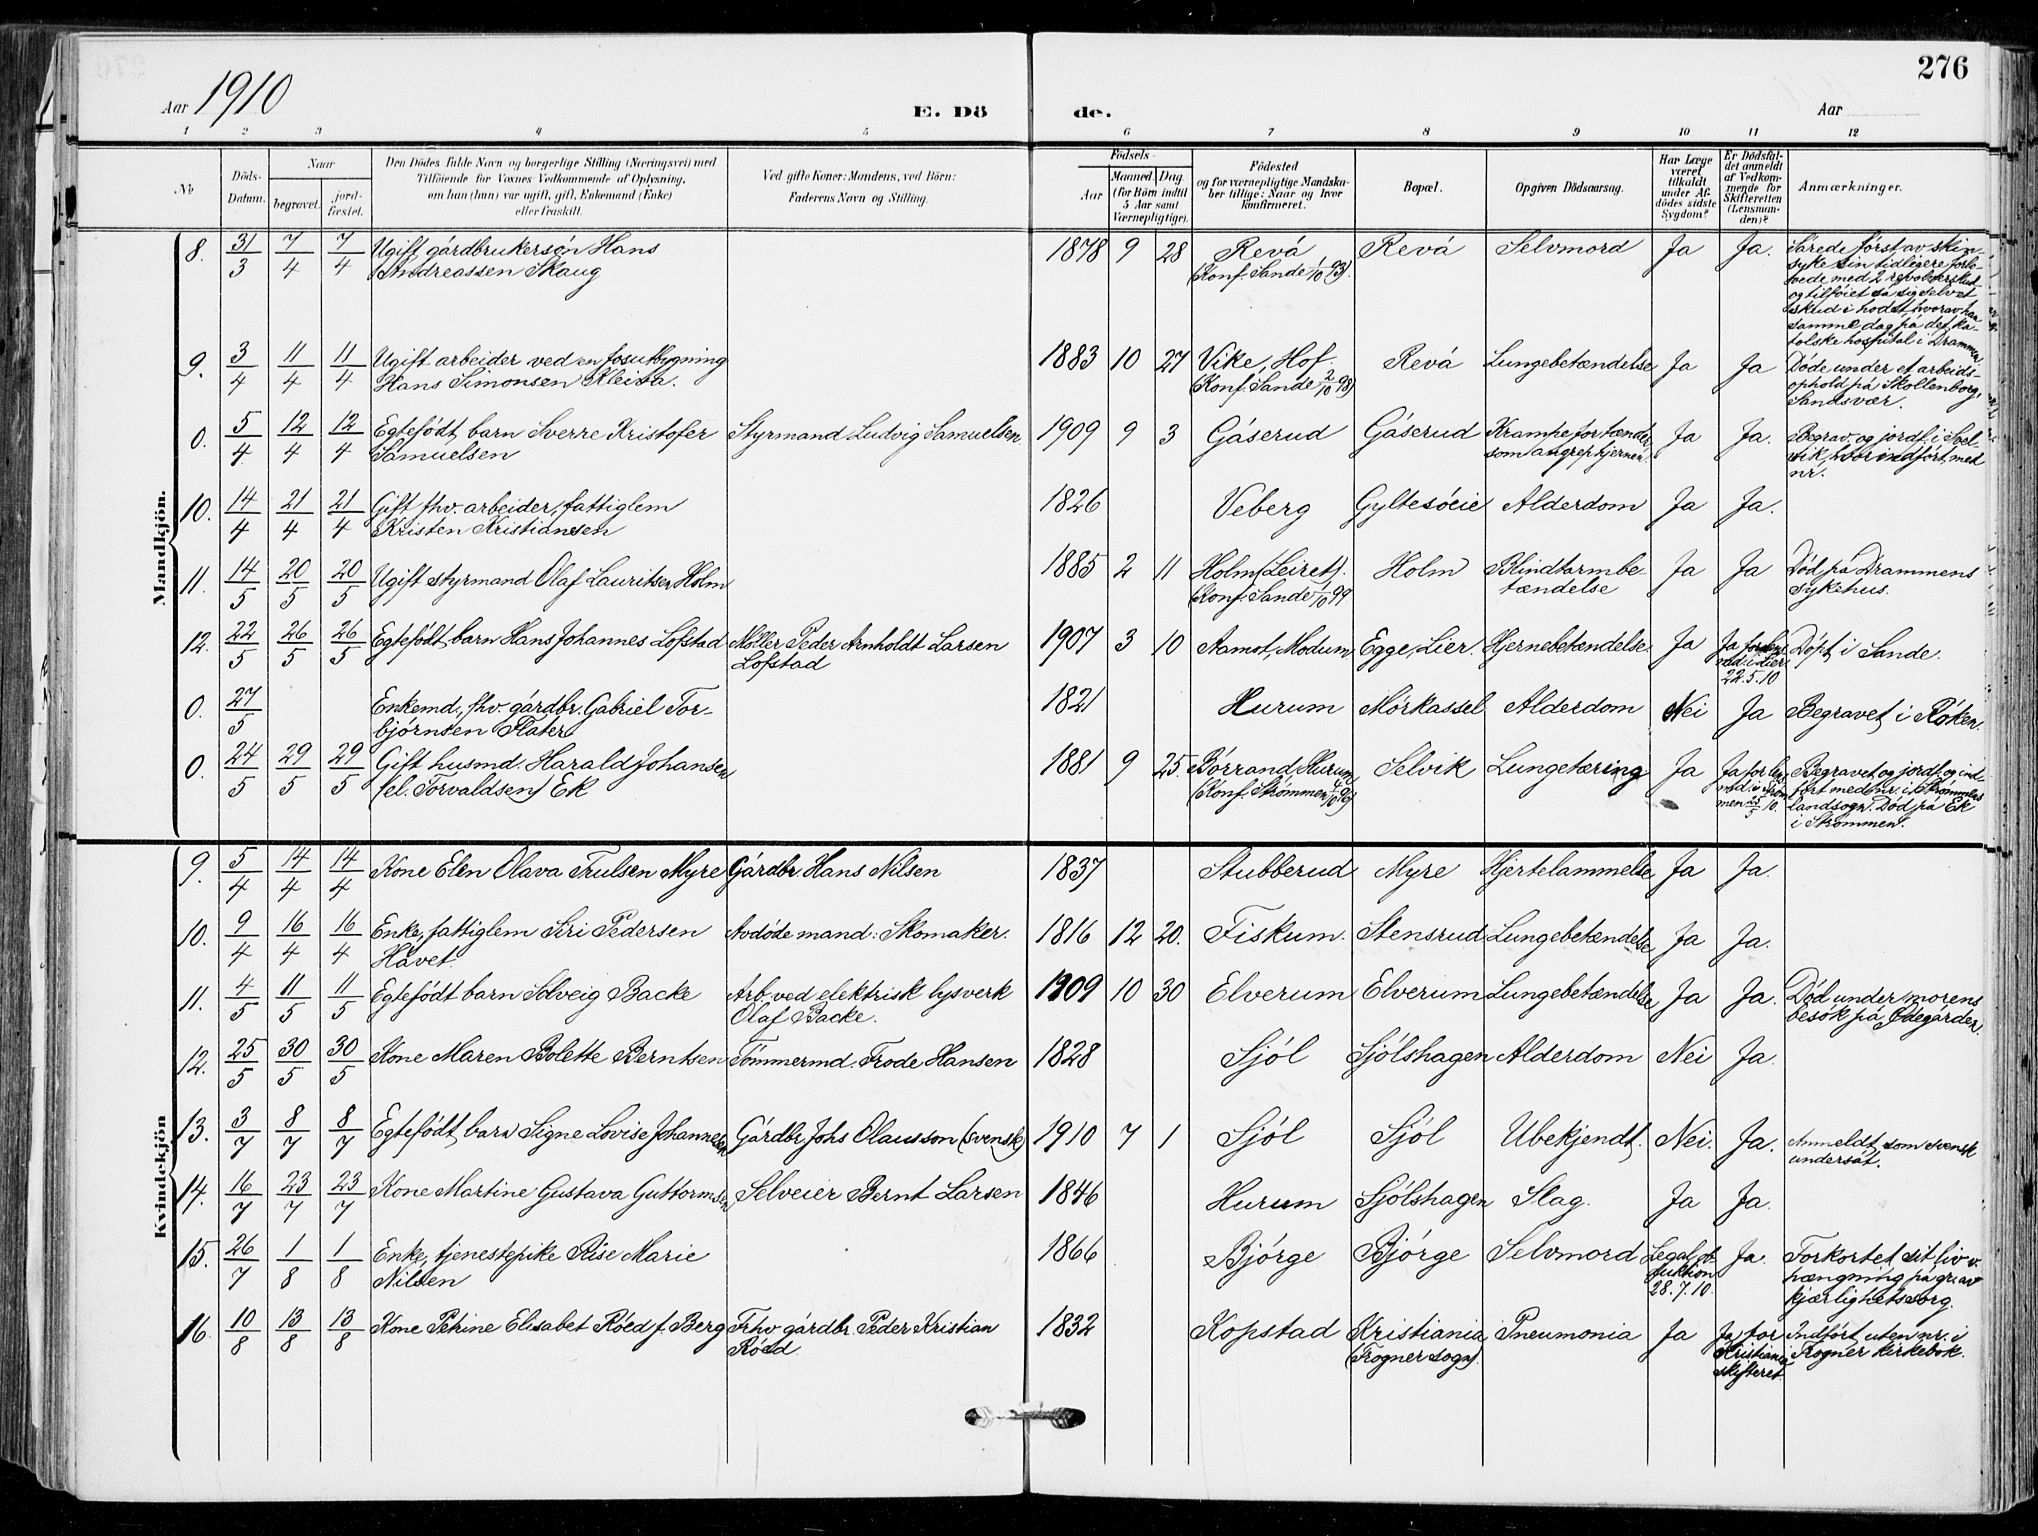 276
Aar 1910
E. Dö de.
Aar
1 2 3 4 5 6 7 8 9 10 11 12
No
Döds-Datum.
Naar
begravet.
jord-fæstet.
Den Dödes fulde Navn og borgerlige Stilling (Næringsvei) med
Tilföiende for Voxnes Vedkommende af Oplysning,
om han (hun) var ugift, gift, Enkemand (Enke)
eller fraskilt.
Ved gifte Koner: Mandens, ved Börn:
Faderens Navn og Stilling.
Födsels-
Aar
Maaned. Dag.
(for Börn indtil
5 Aar samt
Værnepligtige).
Födested
og for værnepligtige Mandska-
ber tillige: Naar og hvor
konfirmeret.
Bopæl.
Opgiven Dödsaarsag.
Har Læge
været
tilkaldt
under Af-
dödes sidste
Sygdom?
Er Dödsfal-
det anmeldt
af Vedkom-
mende for
Skifteretten
(Lensman-
den)?
Anmærkninger.
Mandkjön.
8. 31/3 7/4 7/4 Ugift gårdbrukersøn Hans 1878 9 28 Revå Revå Selvmord Ja Ja.
Andreassen Skaug (Konf. Sande 1/10 93).
Sårede først av skin-
syke sin tidligere forlo-
vede med 2 revolverskud
og tilføiet så sig selv et
skud i hodet, hvorav han
samme dag på det ka-
tolske hospital i Drammen
9. 3/4 11/4 11/4 Ugift arbeider ved en fosutbygning 1883 10 27 Vike, Hof. Revå Lungebetændelse Ja Ja Døde under et arbeids-
Hans Simonsen Kleiva. (Konf. Sande 2/10 98) ophold på Skollenborg,
Sandsvær.
0. 5/4 12/4 12/4 Egtefødt barn Sverre Kristofer Styrmand Ludvig Samuelsen 1909 9 3 Gåserud Gåserud Krampe for tænder Ja Ja. Begrav. og jordf. i Svel-
Samuelsen som angrep hjernen. vik, hvor indført med
nr.
10. 14/4 21/4 21/4 Gift fhv. arbeider, fattiglem 1826 Veberg Gyltesøeie Alderdom Ja Ja.
Kristen Kristiansen
11. 14/5 20/5 20/5 Ugift styrmand Olaf Lauritsen Holm 1885 2 11 Holm (Leiret). Holm Blindtarmbe- Ja Ja Død på Drammens
(Konf. Sande 1/10 99 tændelse sykehus.
12. 22/5 26/5 26/5 Egtefødt barn Hans Johannes Lofstad Møller Peder Arnholdt Larsen 1907 3 10 Aamot, Modum Egge, Lier. Hjernebetændelse Ja Ja for lens- Døpt i Sande.
Lofstad md. i Lier
22.5.10
0. 27/5 Enkemd., fhv. gårdbr. Gabriel Tor- 1821 Hurum Mørkassel Alderdom Nei Ja Begravet i Røken.
bjørnsen Flater
0. 24/5 29/5 29/5 Gift husmd. Harald Johansen 1881 9 25. Børrand, Hurum Selvik Lungetæring Ja Ja for lens- Begravet og jordf. og ind-
(el. Torvaldsen) Ek (Konf. Strømmen 4/10 96) md. i Strøm- ført med nr. i Strømmens
men 25/5 10. landsogn. Død på Ek
i Strømmen.
Kvindekjön
9. 5/4 14/4 14/4 Kone Elen Olava Trulsen Myre Gårdbr. Hans Nilsen 1837 Stubberud Myre Hjertelammelse Ja Ja.
10. 9/4 16/4 16/4 Enke, fattiglem Siri Pedersen Avdøde mand: Skomaker. 1816 12 20. Fiskum. Stensrud Lungebetændelse Ja Ja.
Håvet.
11. 4/5 11/5 11/5 Egtefødt barn Solveig Backe Arb. ved elektrisk lysverk 1909 10 30 Elverum Elverum Lungebetændelse Ja Ja. Død under morens
Olaf Backe. besøk på Ødegården.
12. 25/5 30/5 30/5 Kone Maren Bolette Berntsen Tømmermd. Frode Hansen 1828 Sjøl Sjølshagen Alderdom Nei Ja.
13. 3/7 8/7 8/7 Egtefødt barn Signe Lovise Johannesen Gårdbr. Johs Olausson (svensk) 1910 7 1 Sjøl Sjøl Ubekjendt. Nei. Ja. Anmeldt som svensk
undersåt.
14. 16/7 23/7 23/7 Kone Martine Gustava Guttormsen Selveier Bernt Larsen 1846 Hurum Sjølshagen Slag. Ja Ja.
15. 26/7 1/8 1/8 Enke, tjenestepike Rise Marie 1866 Bjørge Bjørge Selvmord Legal ob- Ja. Forkortet sit liv v.
Nilsen duktion hængning på gr. av
28.7.10. kjærlighetssorg.
16. 10/8 13/8 13/8 Kone Petrine Elisabet Røed f. Berg Frhv. gårdbr. Peder Kristian 1832 Kopstad Kristiania Pneumonia Ja Ja for Indført uten nr. i
Røed (Frogner sogn). Kristiania Frogner kirkebok.
skifteret.